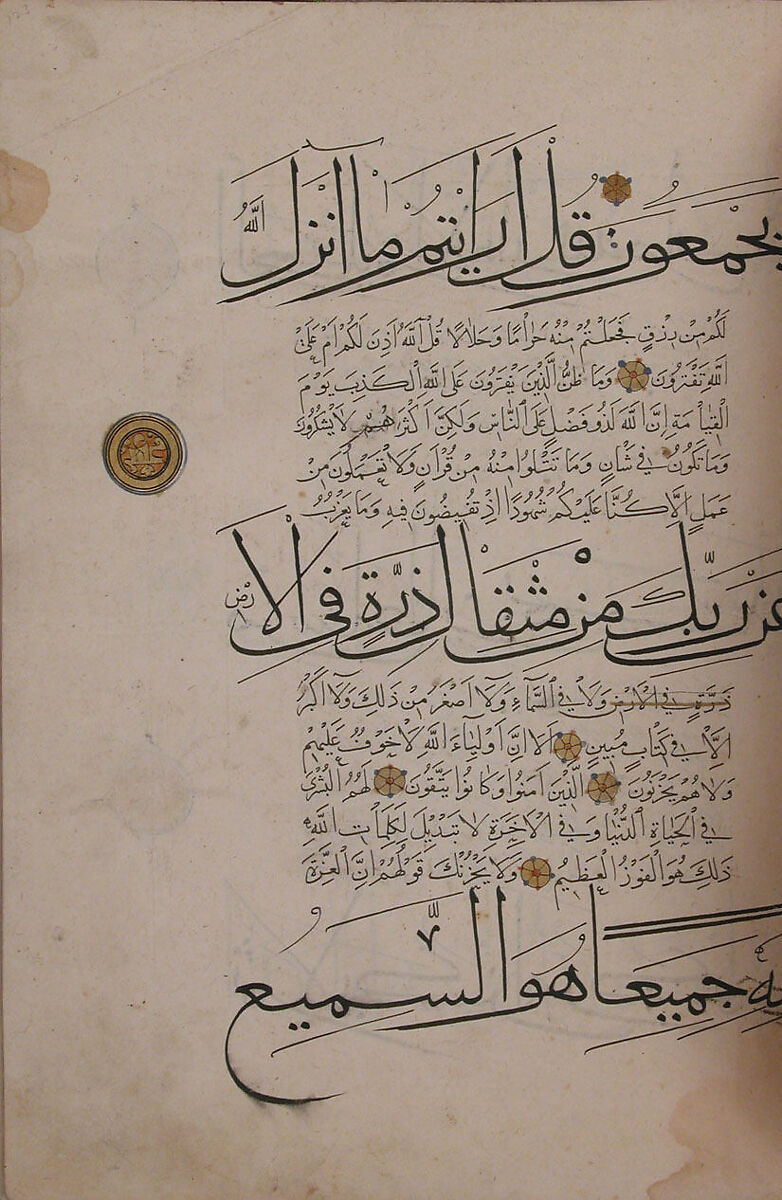 يجمعون قل ارايتم ما انزل الله
لَكُمْ مِنْ رِزْقٍ فَجَعَلْتُمْ مِنْهُ حَرَامًا وَحَلَالًا قُلْ آللَّهُ اَذِنَ لَكُمْ اَمْ عَلَى
اللَّهِ تَفْتَرُونَ وَمَا ظَنُّ الَّذِينَ يَفْتَرُونَ عَلَى اللَّهِ الْكَذِبَ يَوْمَ
الْقِيَامَةِ اِنَّ اللَّهَ لَذُو فَضْلٍ عَلَى النَّاسِ وَلَكِنَّ اَكْثَرَهُمْ لَا يَشْكُرُونَ
وَمَا تَكُونُ فِي شَانٍ وَمَا تَتْلُوا مِنْهُ مِنْ قُرْاٰنٍ وَلَا تَعْمَلُونَ مِنْ
عَمَلٍ اِلَّا كُنَّا عَلَيْكُمْ شُهُودًا اِذْ تُفِيضُونَ فِيهِ وَمَا يَعْزُبُ
عن ربّك من مثقال ذرّة فى الارض
ذَرَّةٍ فِي الْاَرْضِ وَلَا فِي السَّمَاءِ وَلَا اَصْغَرَ مِنْ ذَلِكَ وَلَا اَكْبَرَ
اِلَّا فِي كِتَابٍ مُبِينٍ اَلَا اِنَّ اَوْلِيَاءَ اللَّهِ لَا خَوْفٌ عَلَيْهِمْ
وَلَا هُمْ يَحْزَنُونَ الَّذِينَ اٰمَنُوا وَكَانُوا يَتَّقُونَ لَهُمُ الْبُشْرَى
فِي الْحَيَاةِ الدُّنْيَا وَفِي الْاٰخِرَةِ لَا تَبْدِيلَ لِكَلِمَاتِ اللَّهِ
ذَلِكَ هُوَ الْفَوْزُ الْعَظِيمُ وَلَا يَحْزُنْكَ قَوْلُهُمْ اِنَّ الْعِزَّةَ
لله جميعا هو السميع